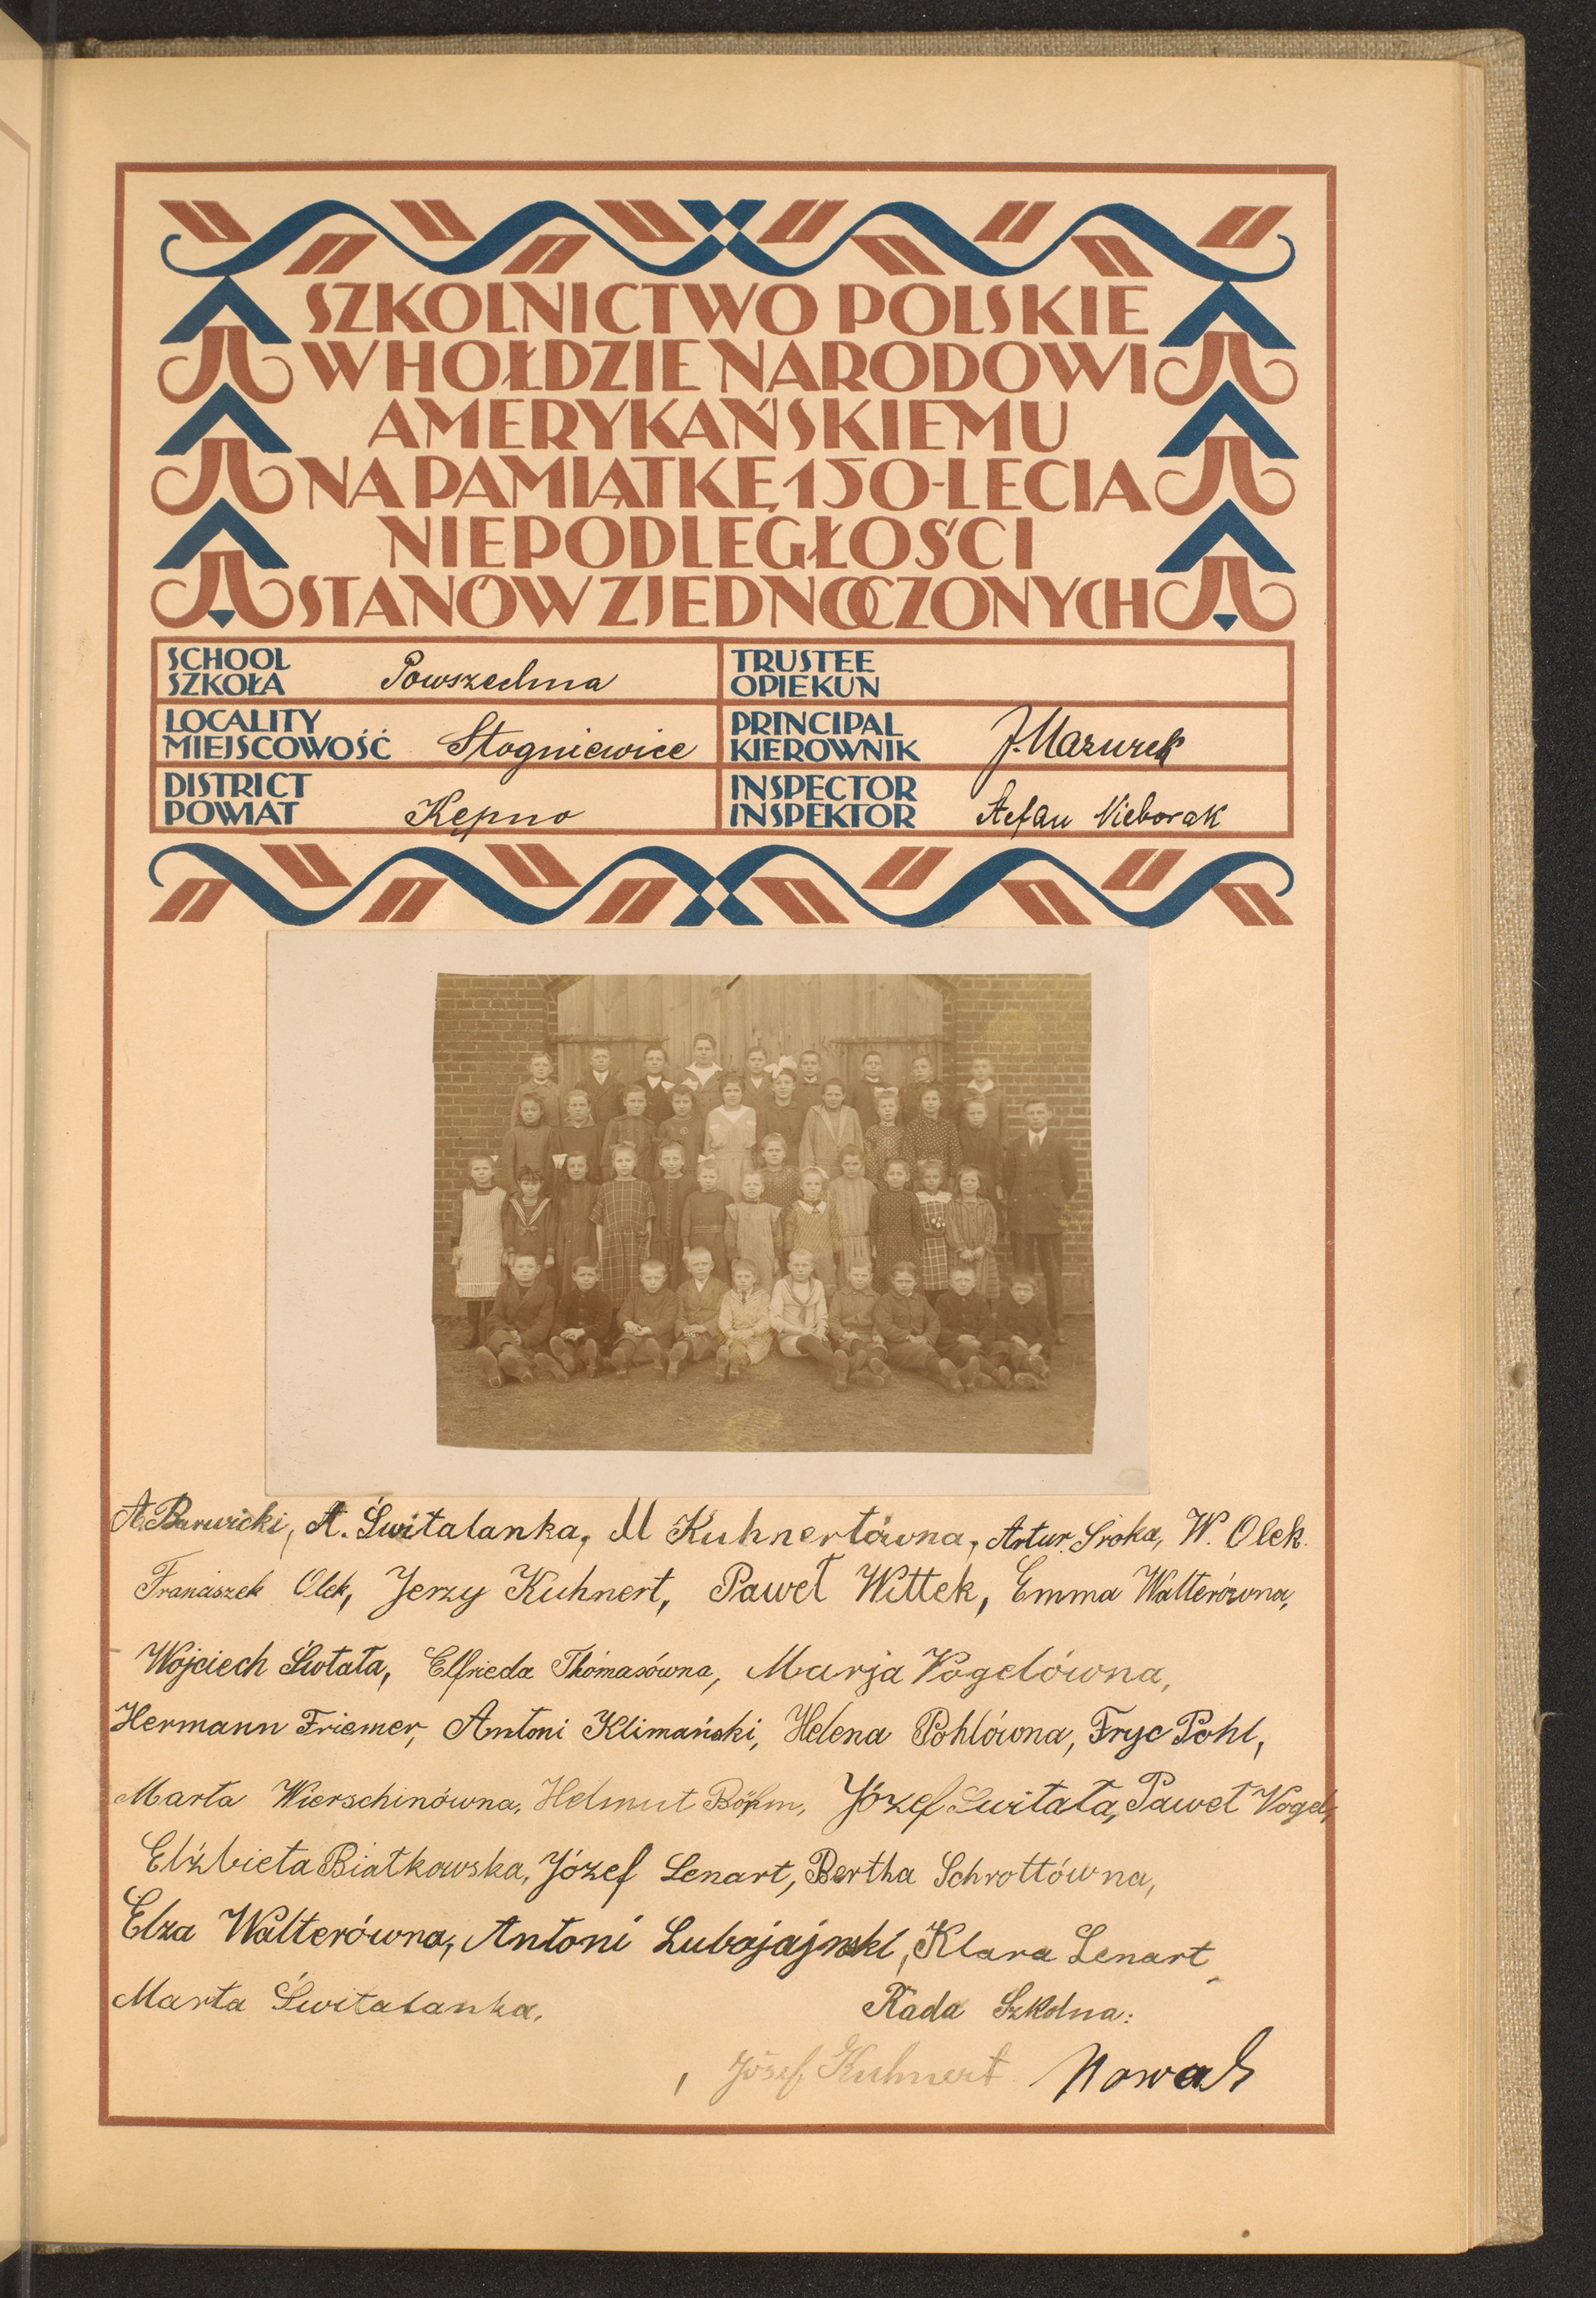 SZKOLNICTWO POLSKIE
W HOŁDZIE NARODOWI
AMERYKAŃSKIEMU
NA PAMIĄTKĘ 150-LECIA
NIEPODLEGŁOŚCI
STANÓW ZJEDNOCZONYCH
SCHOOL
SZKOŁA Powszechna
TRUSTEE
OPIEKUN
LOCALITY
MIEJSCOWOŚĆ Stogniewice
PRINCIPAL
KIEROWNIK J. Mazurek
DISTRICT
POWIAT Kępno
INSPECTOR
INSPEKTOR Stefan Nieborak
A. Barwicki, A. Świtalanka, M Kuhnertówna, Artur Sroka, W. Olek.
Franciszek Olek, Jerzy Kuhnert, Paweł Wittek, Emma Walterówna,
Wojciech Świtała, Elfrieda Thomasówna, Marja Vogelówna,
Hermann Friemer, Antoni Klimański, Helena Pohlówna, Fryc Pohl,
Marta Wierschinówna, Helmut Böhm, Józef Świtała, Paweł Vogel,
Elżbieta Białkowska, Józef Lenart, Bertha Schrottówna,
Elza Walterówna, Antoni Klara Lenart,
Marta Świtalanka.
Rada Szkolna:
Józef Kuhnert Nowak